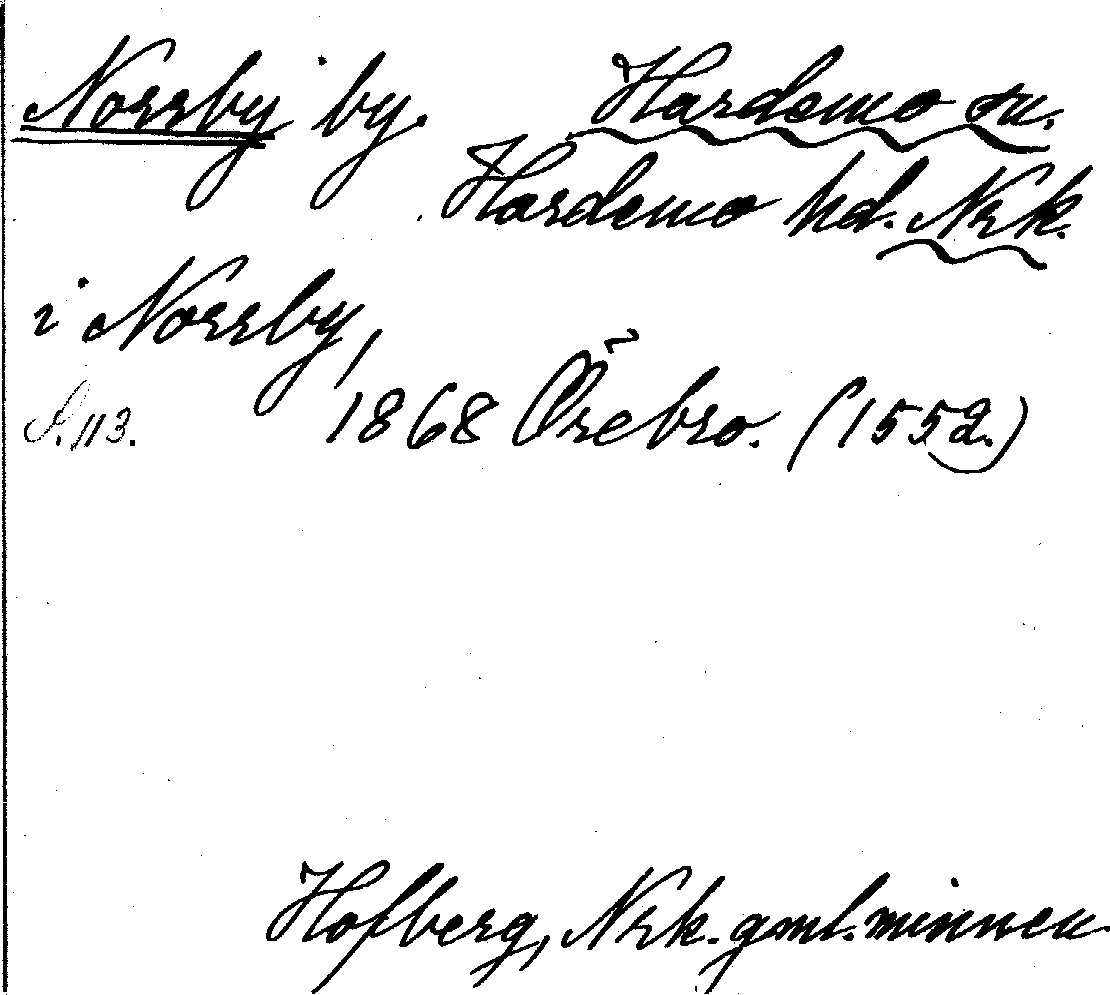 Norrby by. Hardemo sn.
Hardemo hd. Nrk.
i Norrby,
S. 113. 1868 Örebro. (1552.)
Hofberg, Nrk. gml. minnen